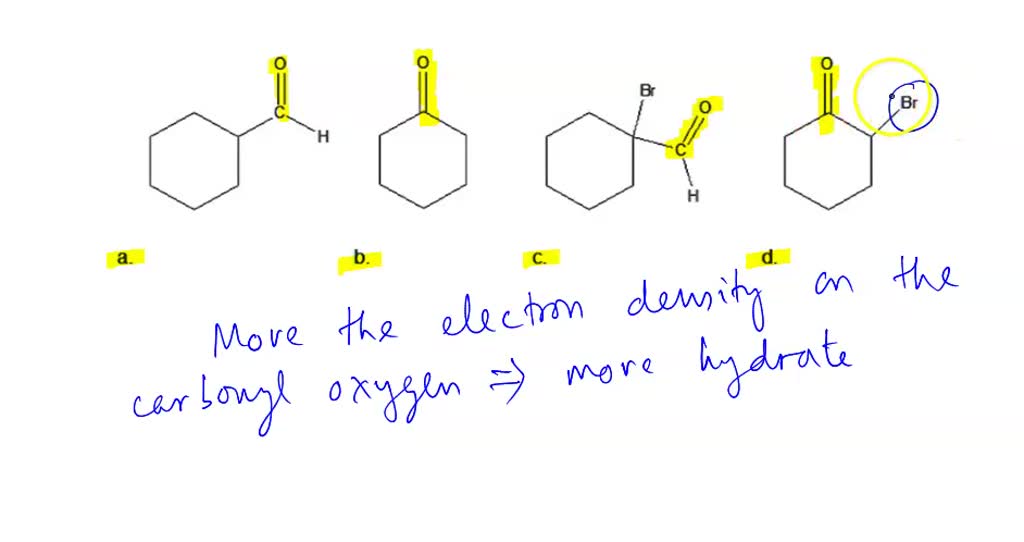 O
C
H
O
Br
O
C
H
O
Br
a.
b.
c.
d.
Move the electron density on the
carbonyl oxygen ⇒ more hydrate